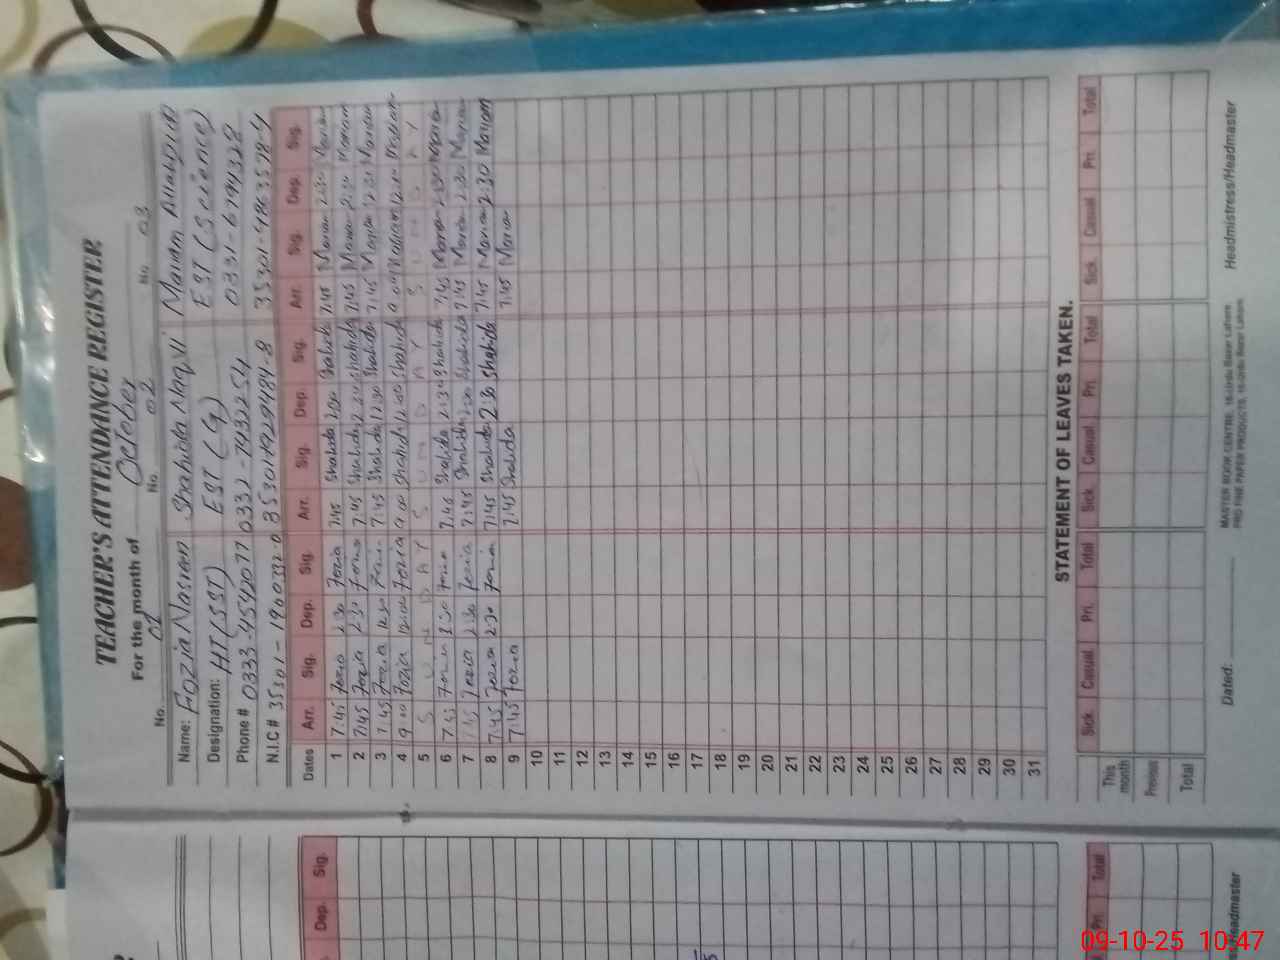 TEACHER'S ATTENDANCE REGISTER
For the month of October
No. 01 No 02 No 03
Name: Fozia Nasreen Shahida Naqvi Mariam Allah
Designation: HT (SST) EST (G) EST (Science)
Phone # 0333-4542077 0332-7432254 0331-6794328
N.I.C # 35301-1900332-0 3530149294848-8 35301-4863578-4
Dates Arr. Sig. Dep. Sig. Arr. Sig. Dep. Sig. Arr. Sig. Dep. Sig.
1 7:45 Fozia 2:30 Fozia 7:45 Shahida 2:30 Shahida 7:45 Mariam 2:30 Mariam
2 7:45 Fozia 2:30 Fozia 7:45 Shahida 2:30 Shahida 7:45 Mariam 2:30 Mariam
3 7:45 Fozia 12:30 Fozia 7:45 Shahida 12:30 Shahida 7:45 Mariam 12:30 Mariam
4 9:00 Fozia 12:00 Fozia 9:00 Shahida 12:00 Shahida 9:00 Mariam 12:00 Mariam
5 S U N D A Y S U N D A Y S U N D A Y
6 7:45 Fozia 2:30 Fozia 7:45 Shahida 2:30 Shahida 7:45 Mariam 2:30 Mariam
7 7:45 Fozia 2:30 Fozia 7:45 Shahida 2:30 Shahida 7:45 Mariam 2:30 Mariam
8 7:45 Fozia 2:30 Fozia 7:45 Shahida 2:30 Shahida 7:45 Mariam 2:30 Mariam
9 7:45 Fozia 7:45 Shahida 7:45 Mariam
10
11
12
13
14
15
16
17
18
19
20
21
22
23
24
25
26
27
28
29
30
31
STATEMENT OF LEAVES TAKEN.
Sick. Casual Pri. Total Sick. Casual. Pri. Total Sick. Casual Pri. Total
This month
Previous
Total
MASTER BOOK CENTRE, 16-Urdu Bazar Lahore
PRO FINE PAPER PRODUCTS, 16-Urdu Bazar Lahore
Dated: Headmistress/Headmaster
Dep. Sig.
Pri. Total
Headmaster
09-10-25 10:47